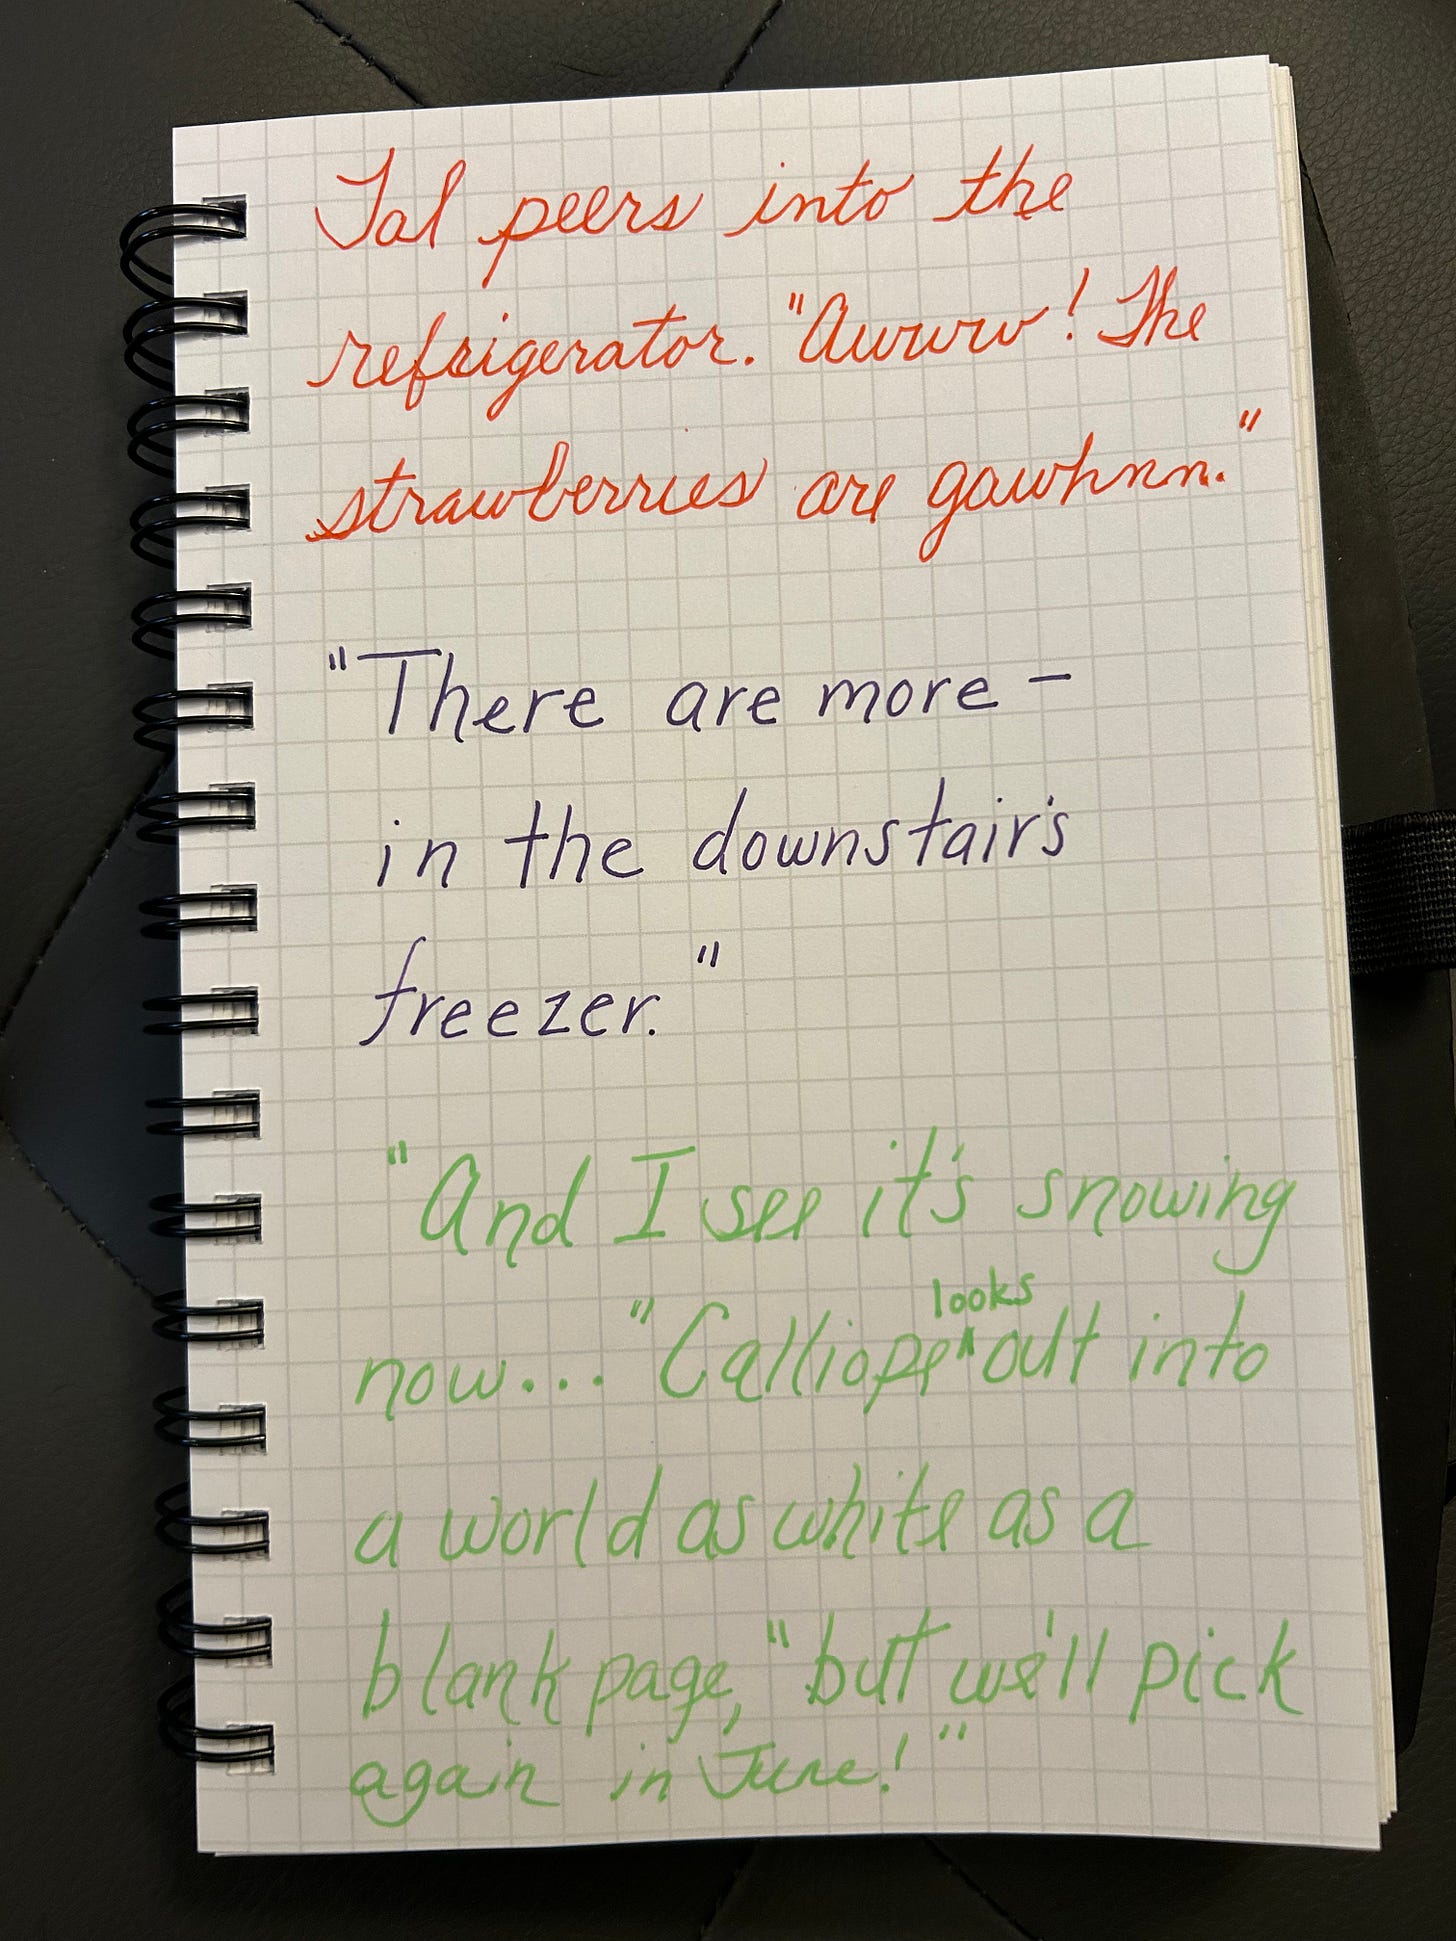 Tal peers into the
refrigerator. "Awww! The
strawberries are gawhnn."
"There are more –
in the downstair's
freezer."
"And I see it's snowing
looks
now... "Calliope ^ out into
a world as white as a
blank page, "but we'll pick
again in June!"